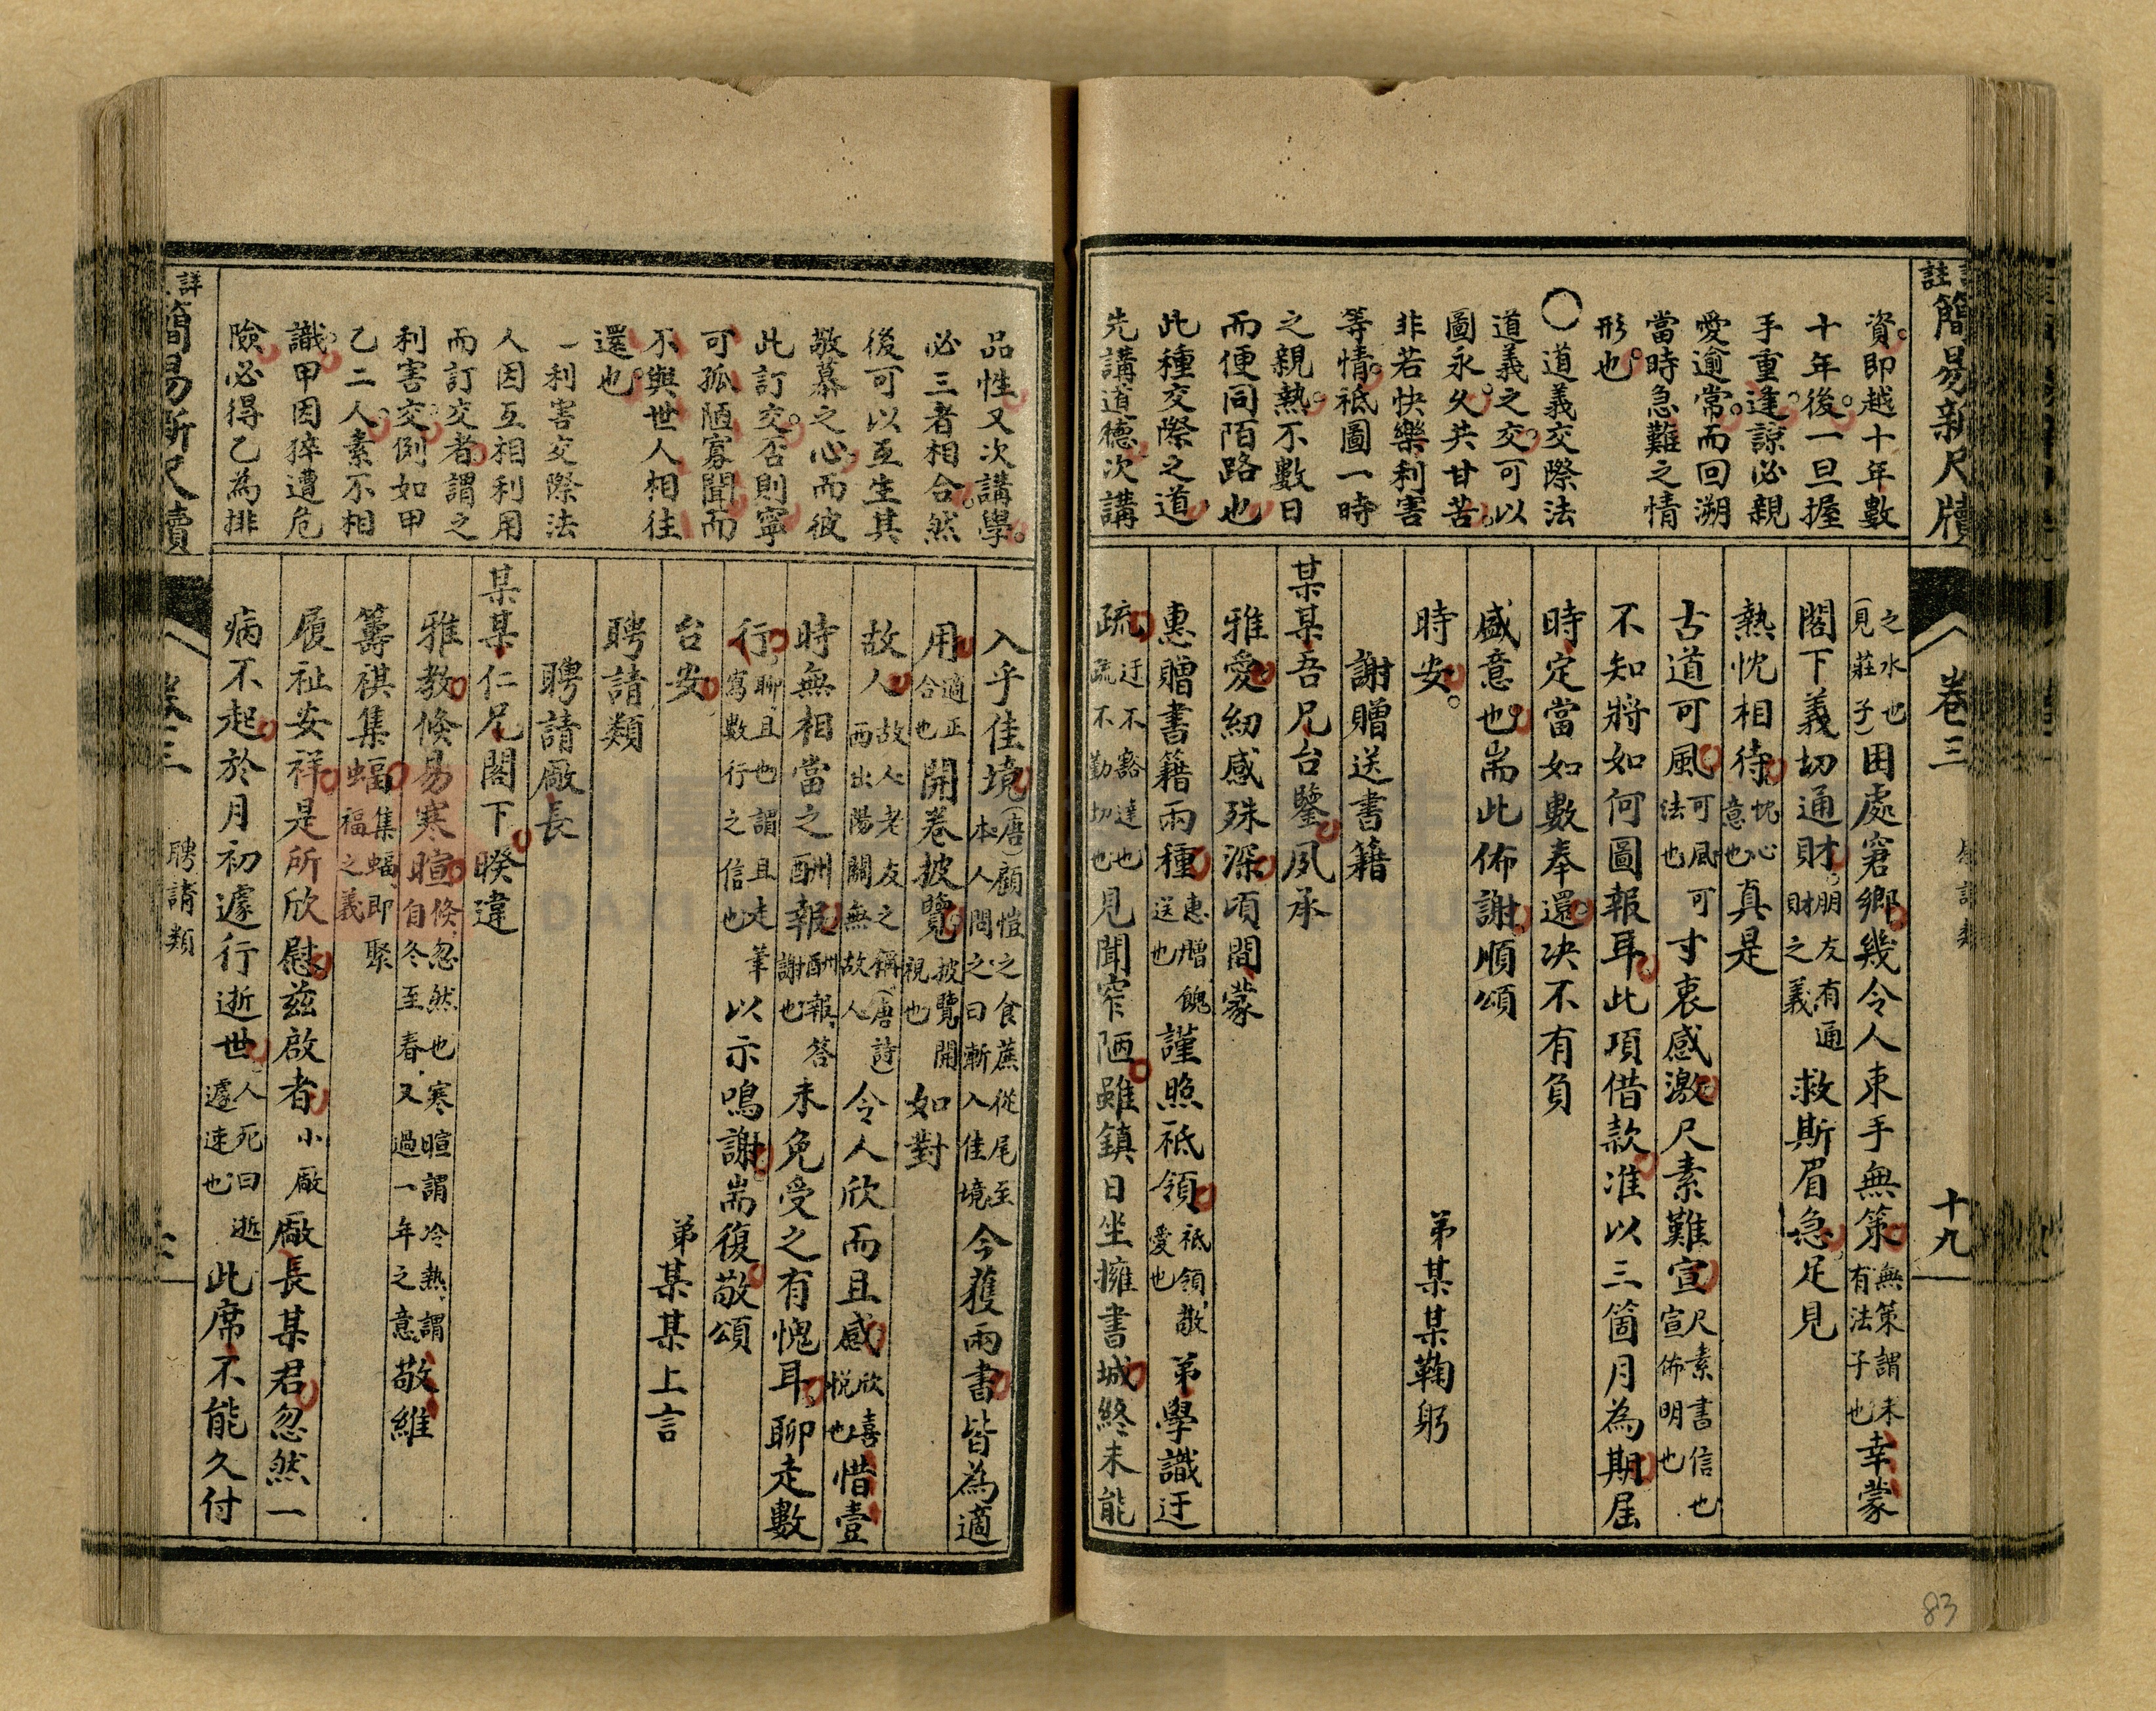 註簡易新尺牘 卷三 十九
資即越十年數
十年後一旦握
手重逢諒必親
愛逾常而回溯
當時急難之情
形也
○道義交際法
道義之交可以
圖永久共甘苦
非若快樂利害
等情祗圖一時
之親熱不數日
而便同陌路也
此種交際之道
先講道德次講
之水也(見莊子)困處窘鄉幾令人束手無策無策謂未有法子也幸蒙
閣下義切通財朋友有通財之義救斯眉急足見
熱忱相待忱心意也真是
古道可風可風可法也寸衷感激尺素難宣尺素書信也宣佈明也
不知將如何圖報耳此項借款准以三箇月為期屆
時定當如數奉還决不有負
盛意也耑此佈謝順頌
時安 弟某某鞠躬
謝贈送書籍
某某吾兄台鑒夙承
雅愛紉感殊深頃間蒙
惠贈書籍兩種惠贈餽送也謹照祗領祗領敬愛也弟學識迂
疏迂不豁達也疏不勤切也見聞窄陋雖鎮日坐擁書城終未能
品性又次講學
必三者相合然
後可以互生其
敬慕之心而彼
此訂交否則寧
可孤陋寡聞而
不與世人相往
還也
一利害交際法
人因互相利用
而訂交者謂之
利害交倒如甲
乙二人素不相
識甲因猝遭危
險必得乙為排
入乎佳境(唐)顧愷之食蔗從尾至本人問之曰漸入佳境今獲兩書皆為適
用適正合也開卷披覽披覽開視也如對
故人故人老友之稱(唐詩)西出陽關無故人令人欣而且感欣喜悦也惜壹
時無相當之酬報酬報答謝也未免受之有愧耳聊走數
行聊且也謂且走筆寫數行之信也以示鳴謝耑復敬頌
台安 弟某某上言
聘請類
聘請廠長
某某仁兄閣下睽違
雅教倏易寒暄倏忽然也寒暄謂冷熱謂自冬至春又過一年之意敬維
籌祺集蝠集蝠即聚福之義
履祉安祥是所欣慰兹啟者小廠廠長某君忽然一
病不起於月初遽行逝世人死曰逝遽速也此席不能久付
詳簡易新尺牘 卷三 聘請類
83